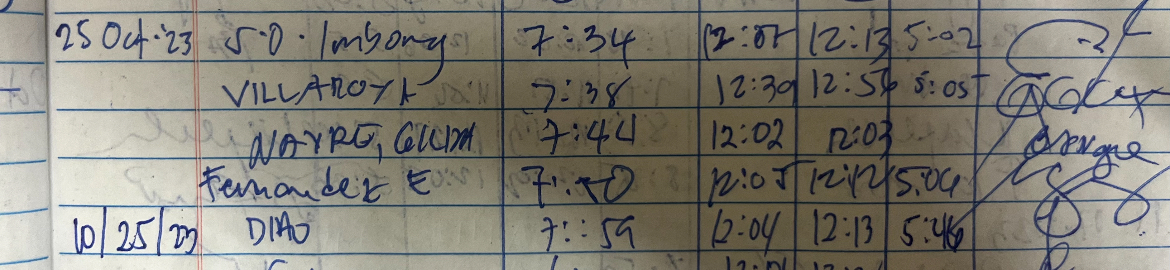 25 Oct. '23 S.O. Imbong 7:34 12:07 12:13 5:02
VILLAROYA 7:38 12:30 12:56 5:05
NAYRE, 7:44 12:02 12:03
Fernandez E 7:50 12:05 12:12 5:04
10/25/23 DIAO 7:59 12:04 12:13 5:46